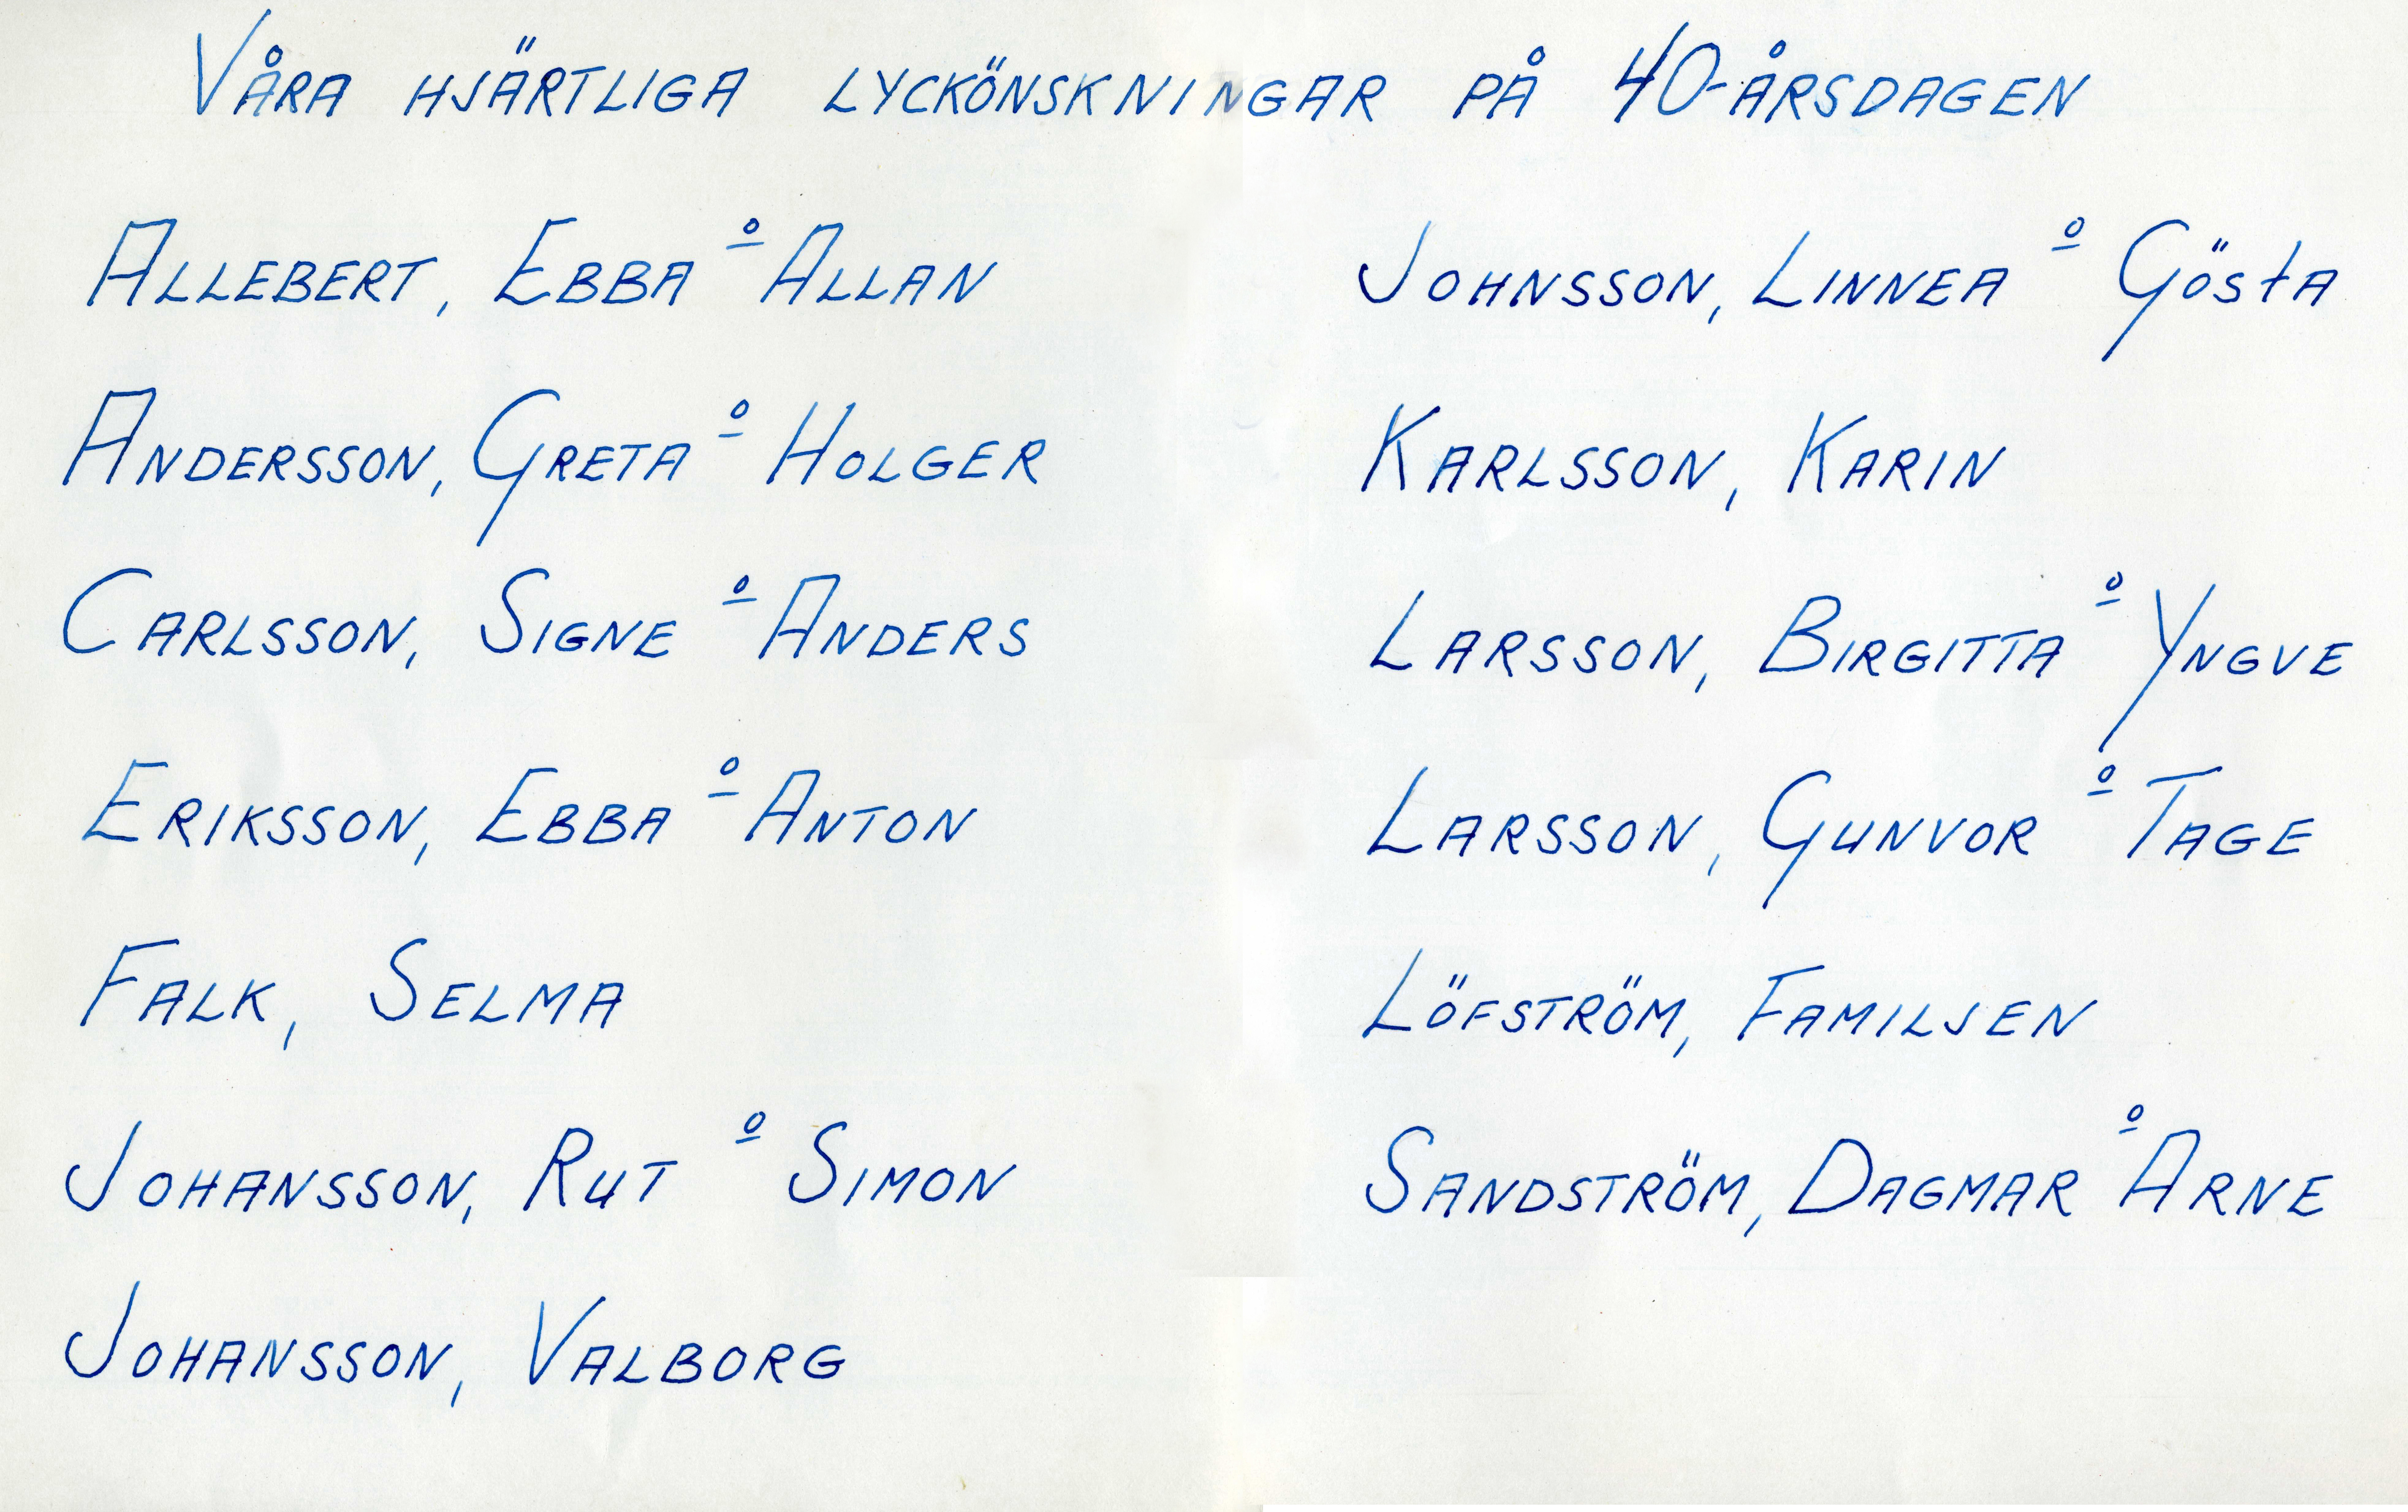 VÅRA HJÄRTLIGA LYCKÖNSKNINGAR PÅ 40-ÅRSDAGEN
ALLEBERT, EBBA o ALLAN
ANDERSSON, GRETA o HOLGER
CARLSSON, SIGNE o ANDERS
ERIKSSON, EBBA o ANTON
FALK, SELMA
JOHANSSON, RUT o SIMON
JOHANSSON, VALBORG
JOHNSSON, LINNEA o GÖSTA
KARLSSON, KARIN
LARSSON, BIRGITTA o YNGVE
LARSSON, GUNVOR o TAGE
LÖFSTRÖM, FAMILJEN
SANDSTRÖM, DAGMAR o ARNE